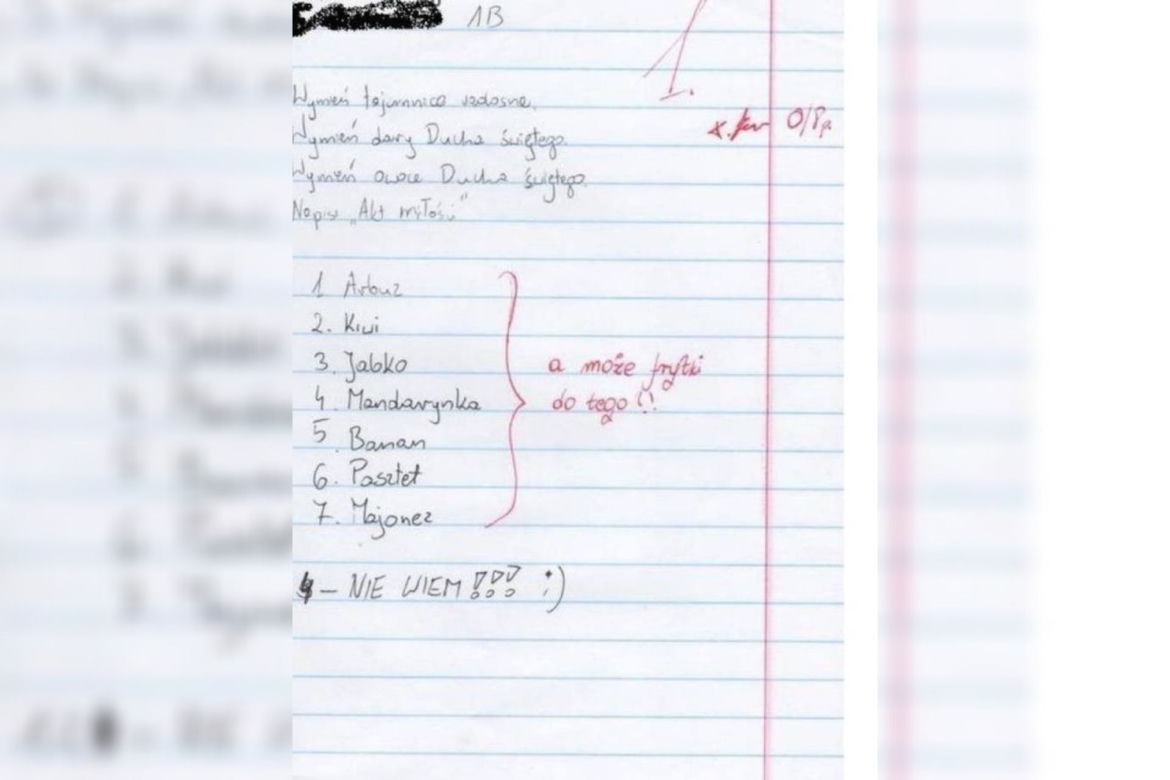 1B
1.
0/8p.
Wymień tajemnice radosne.
Wymień dary Ducha świętego.
Wymień owoce Ducha świętego.
Napisz „Akt miłości"
1 Arbuz
2. Kiwi
3. Jabko
4. Mandarynka
5. Banan
6. Pasztet
7. Majonez
a może frytki
do tego !?
4 – NIE WIEM!!! :)